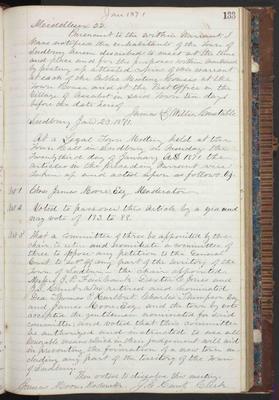 Jan 1871
133
Middlesex SS.
Pursuant to the within Warrant I
have notified the inhabitants of the Town of
Sudbury herein described to meet at the time
and place and for the purposes within named
by posting up attested copies of said warrant
at each of the Public Meeting Houses at the
Town House and at the Post Office in the
Village of in said Town ten days
before the date hereof
James Constable
Sudbury Jan 23. 1871.
At a Legal Town Meeting held at the
Town Hall in Sudbury on Monday the
Twenty third day of January A.D. 1871 the
articles in the preceding Warrant were
taken up and acted upon as follows
Art 1 Chose James Moore Esq Moderator
Art 2 Voted to pass over this article by a yea and
nay vote of 113 to 88.
Art 3 That a committee of three be appointed by the
chair to retire and nominate a committee of
three to oppose any petition to the General
Court to set off any part of the territory of the
Town of Sudbury - the chair appointed
Messrs J. P. Fairbank Jones and
retired and nominated
Dea Thomas P. Hurlbut Charles Thompson Esq
and James Moore Esq. and the town by vote
accepted the gentlemen nominated for said
committee and voted that this committee
be authorized and instructed to use all
honorable means which in their judgement will aid
in preventing the formation of a new town in-
cluding any part of the territory of the Town
of Sudbury.
Then voted to dissolve this meeting.
James Moore Moderator J. S. Clerk